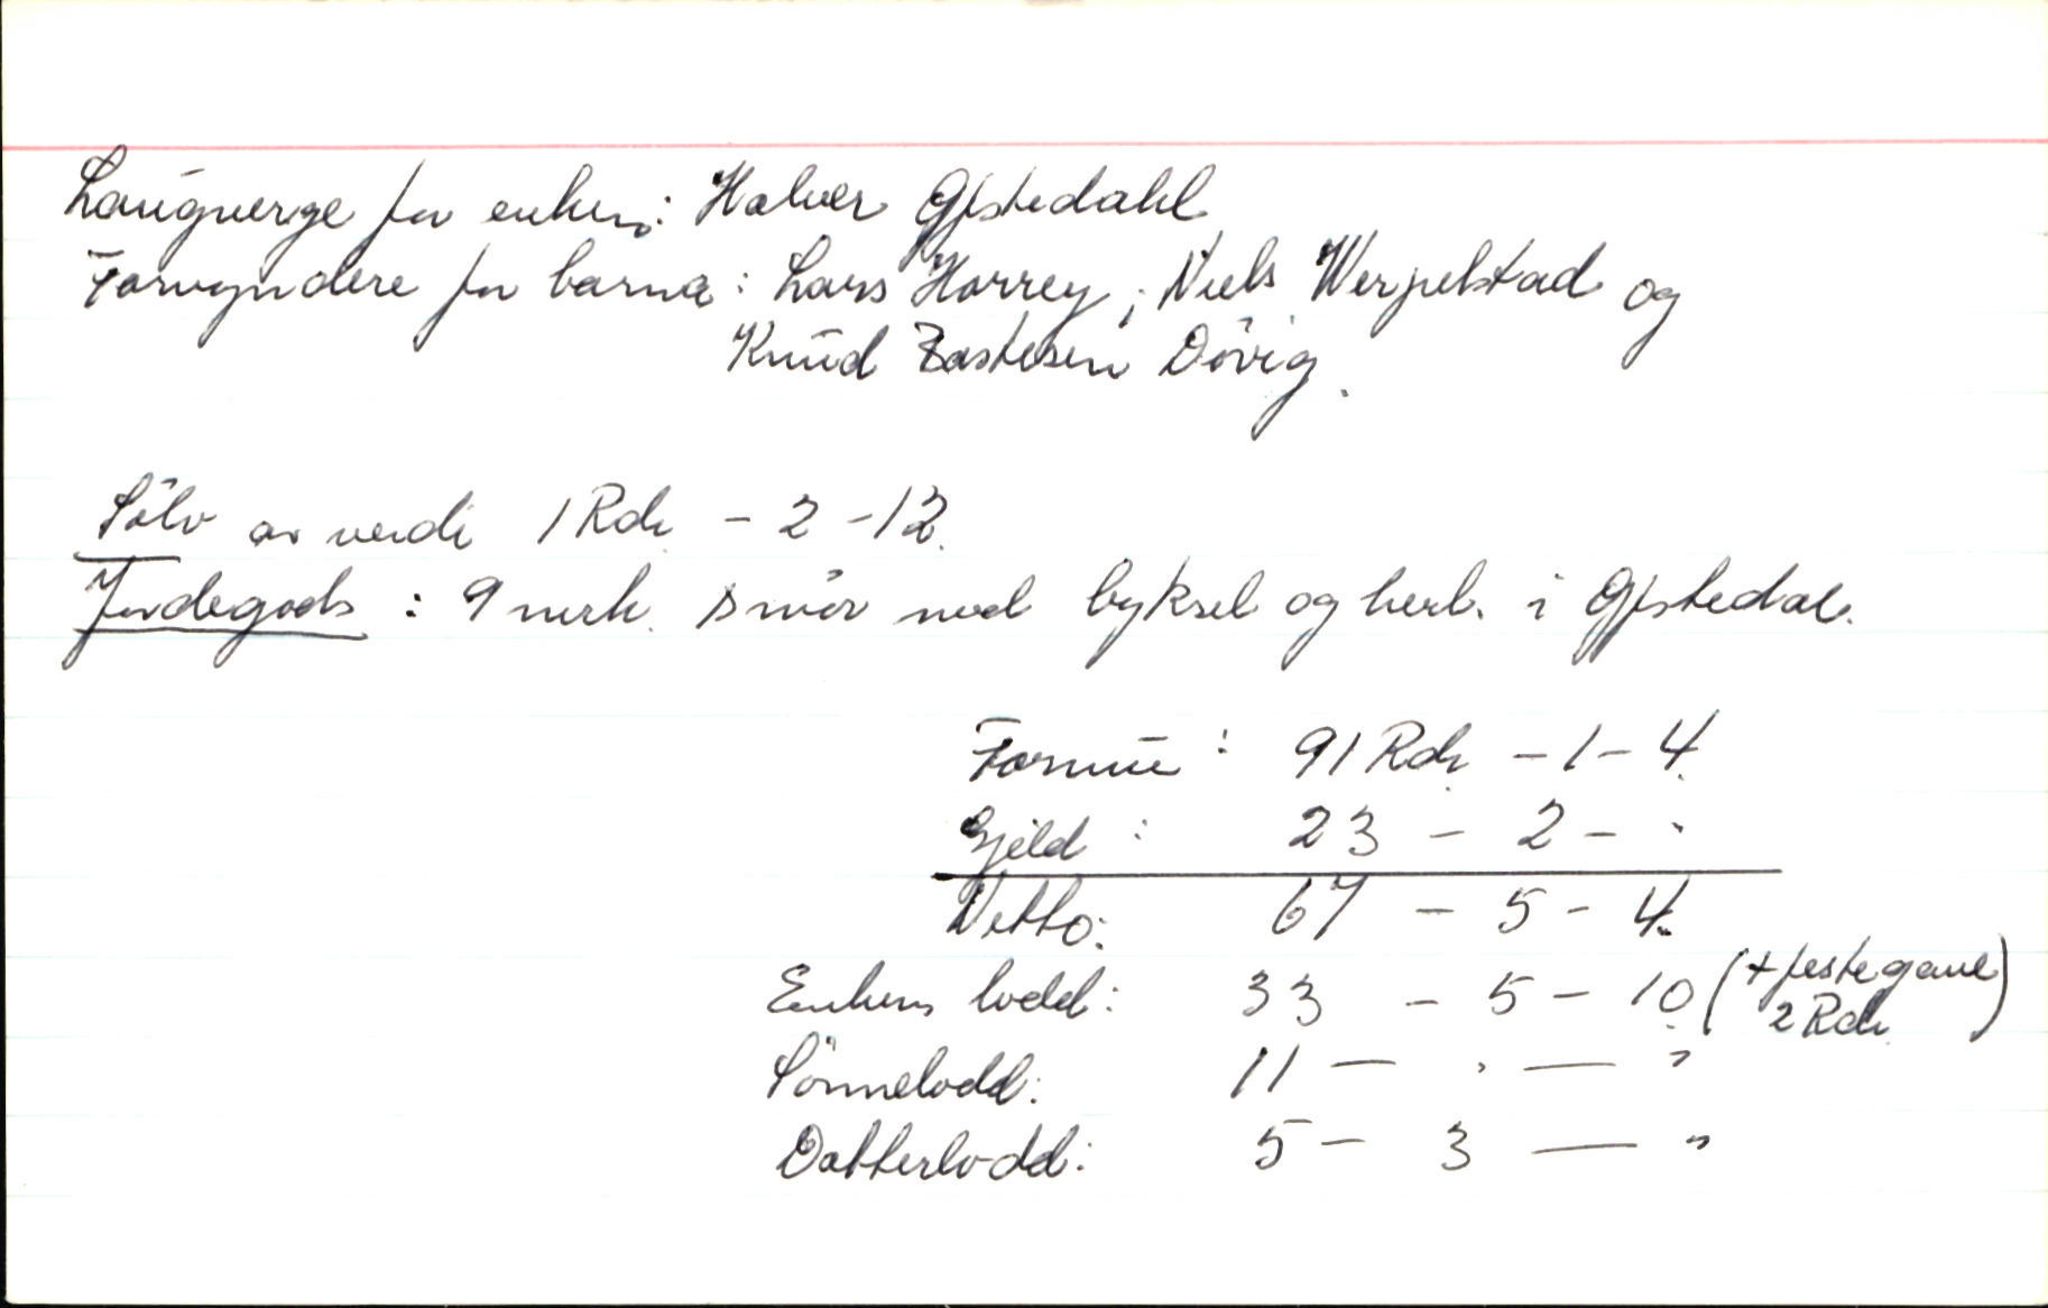 Laugverge for enken: Halver Gjstedahl
Formyndere for barna: Lars Horrey, Niels Werpelstad og
Knud Tostesen Dövig.
Sölv av verdi 1 Rdr. - 2 - 12.
Jordegods: 9 merk. smör med byksel og herl. i Gjstedal.
Formue: 91 Rdr. - 1 - 4.
Gjeld: 23 - 2 - "
Netto: 67 - 5 - 4.
Enkens lodd: 33 - 5 - 10. (+ festegave
2 Rdr.)
Sönnelodd: 11 — " — "
Datterlodd: 5 - 3 — "